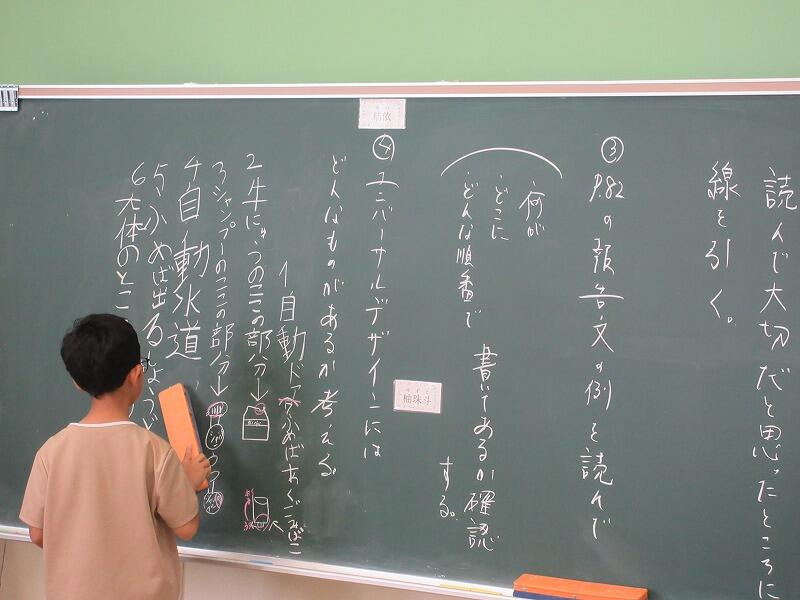 読んで大切だと思ったところに
線を引く。
③
P.82の報告文の例を読んで
何が
どこに
どんな順番で
書いてあるか確認
する。
④
ユニバーサルデザインには
どんなものがあるか考える。
1自動ドア
ふめばあくごみばこ
2牛にゅうのここの部分↓
3シャンプーのここの部分↓
4自動水道
5ふめば出る
6大体のとこ
結依
柚珠斗